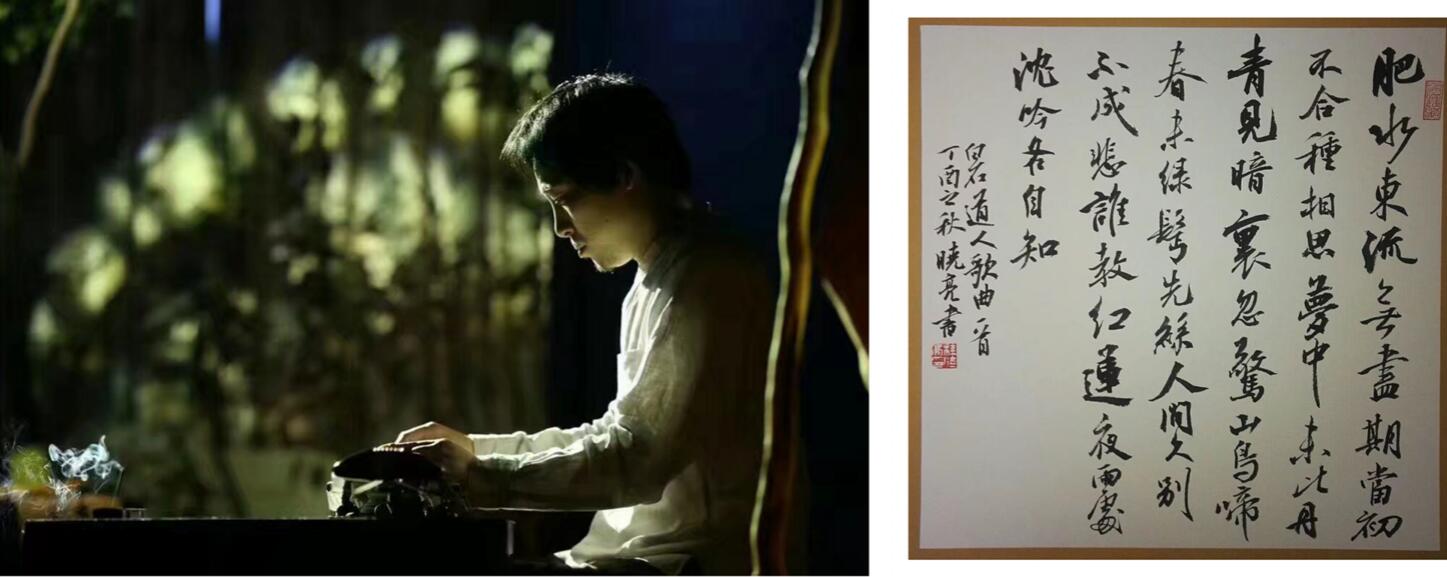 肥水東流无盡期當初
不合種相思夢中未比丹
青見暗裏忽驚山鳥啼
春未緑鬢先絲人間久別
不成悲誰教紅蓮夜兩處
沈吟各自知
白石道人歌曲一首
丁酉之秋曉亮書